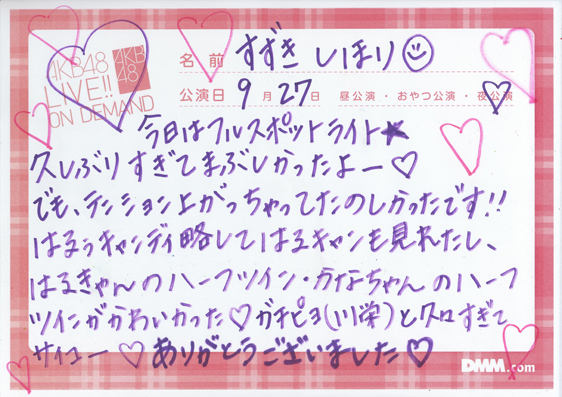 AKB48
LIVE!!
ON DEMAND
AKB
48
名前 すずき しほり
公演日 9月27日 昼公演・おやつ公演・夜公演
今日はフルスポットライト★
久しぶりすぎてまぶしかったよー♡
でも、テンション上がっちゃってたのしかったです!!
はるぅキャンディ略してはるキャンも見れたし、
はるきゃんのハーフツイン・かなちゃんのハーフ
ツインがかわいかった♡ガチピヨ(川栄)と久々すぎて
サイコー♡ありがとうございました♡
DMM.com